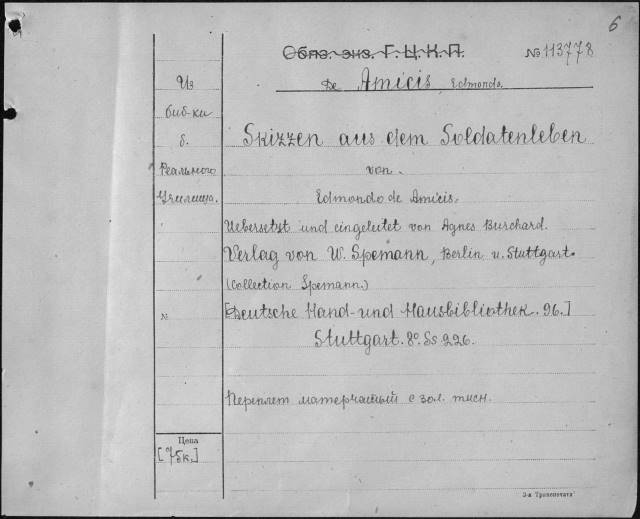 6
Обяз. экз. Г. Ц. К. П.
№ 113778
De Amicis, Edmondo.
Из
биб-ки
б.
Реального
Училища.
Skizzen aus dem Soldatenleben
von
Edmondo de Amicis.
Uebersetzt und eingeleitet von Agnes Burchard.
Verlag von W. Spemann, Berlin u. Stuttgart.
(Collection Spemann.)
№
[Deutsche Hand- und Hausbibliothek. 96.]
Stuttgart. 8° Ss 226.
Переплет матерчатый с зол. тисн.
Цена
[75к.]
3-я Трапепечать